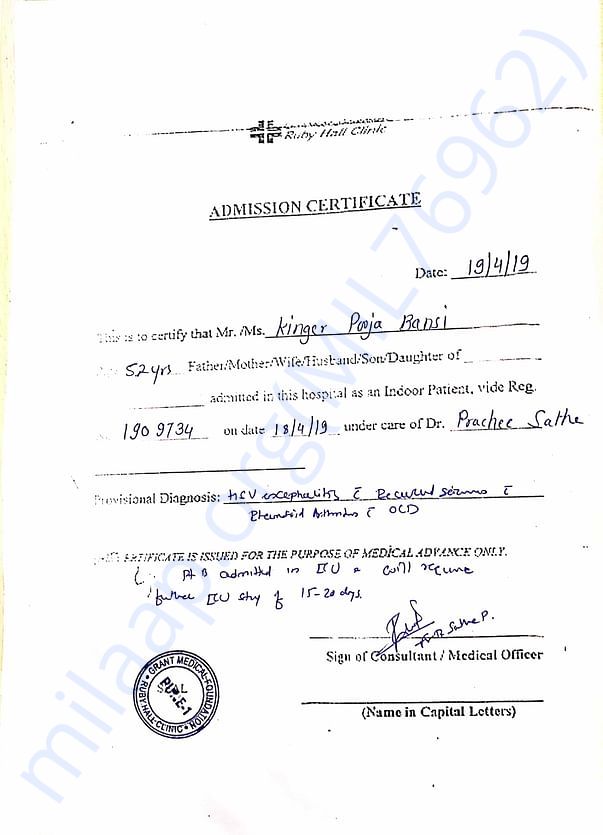 Ruby Hall Clinic
ADMISSION CERTIFICATE
Date: 19/4/19
This is to certify that Mr./Ms. Kinger Pooja Bansi
52 yrs Father/Mother/Wife/Husband/Son/Daughter of
admitted in this hospital as an Indoor Patient, vide Reg.
1909734 on date 18/4/19 under care of Dr. Prachee Sathe
Provisional Diagnosis: HSV encephalitis c̄ Recurrent seizures c̄
Rheumatoid Arthritis c̄ OCD
CERTIFICATE IS ISSUED FOR THE PURPOSE OF MEDICAL ADVANCE ONLY.
Pt is admitted in ICU & will require
further ICU stay of 15-20 days.
Sathe P.
Sign of Consultant / Medical Officer
(Name in Capital Letters)
GRANT MEDICAL FOUNDATION
RUBY HALL CLINIC
SEAL
PUNE-1
milaap.org(MIL76962)